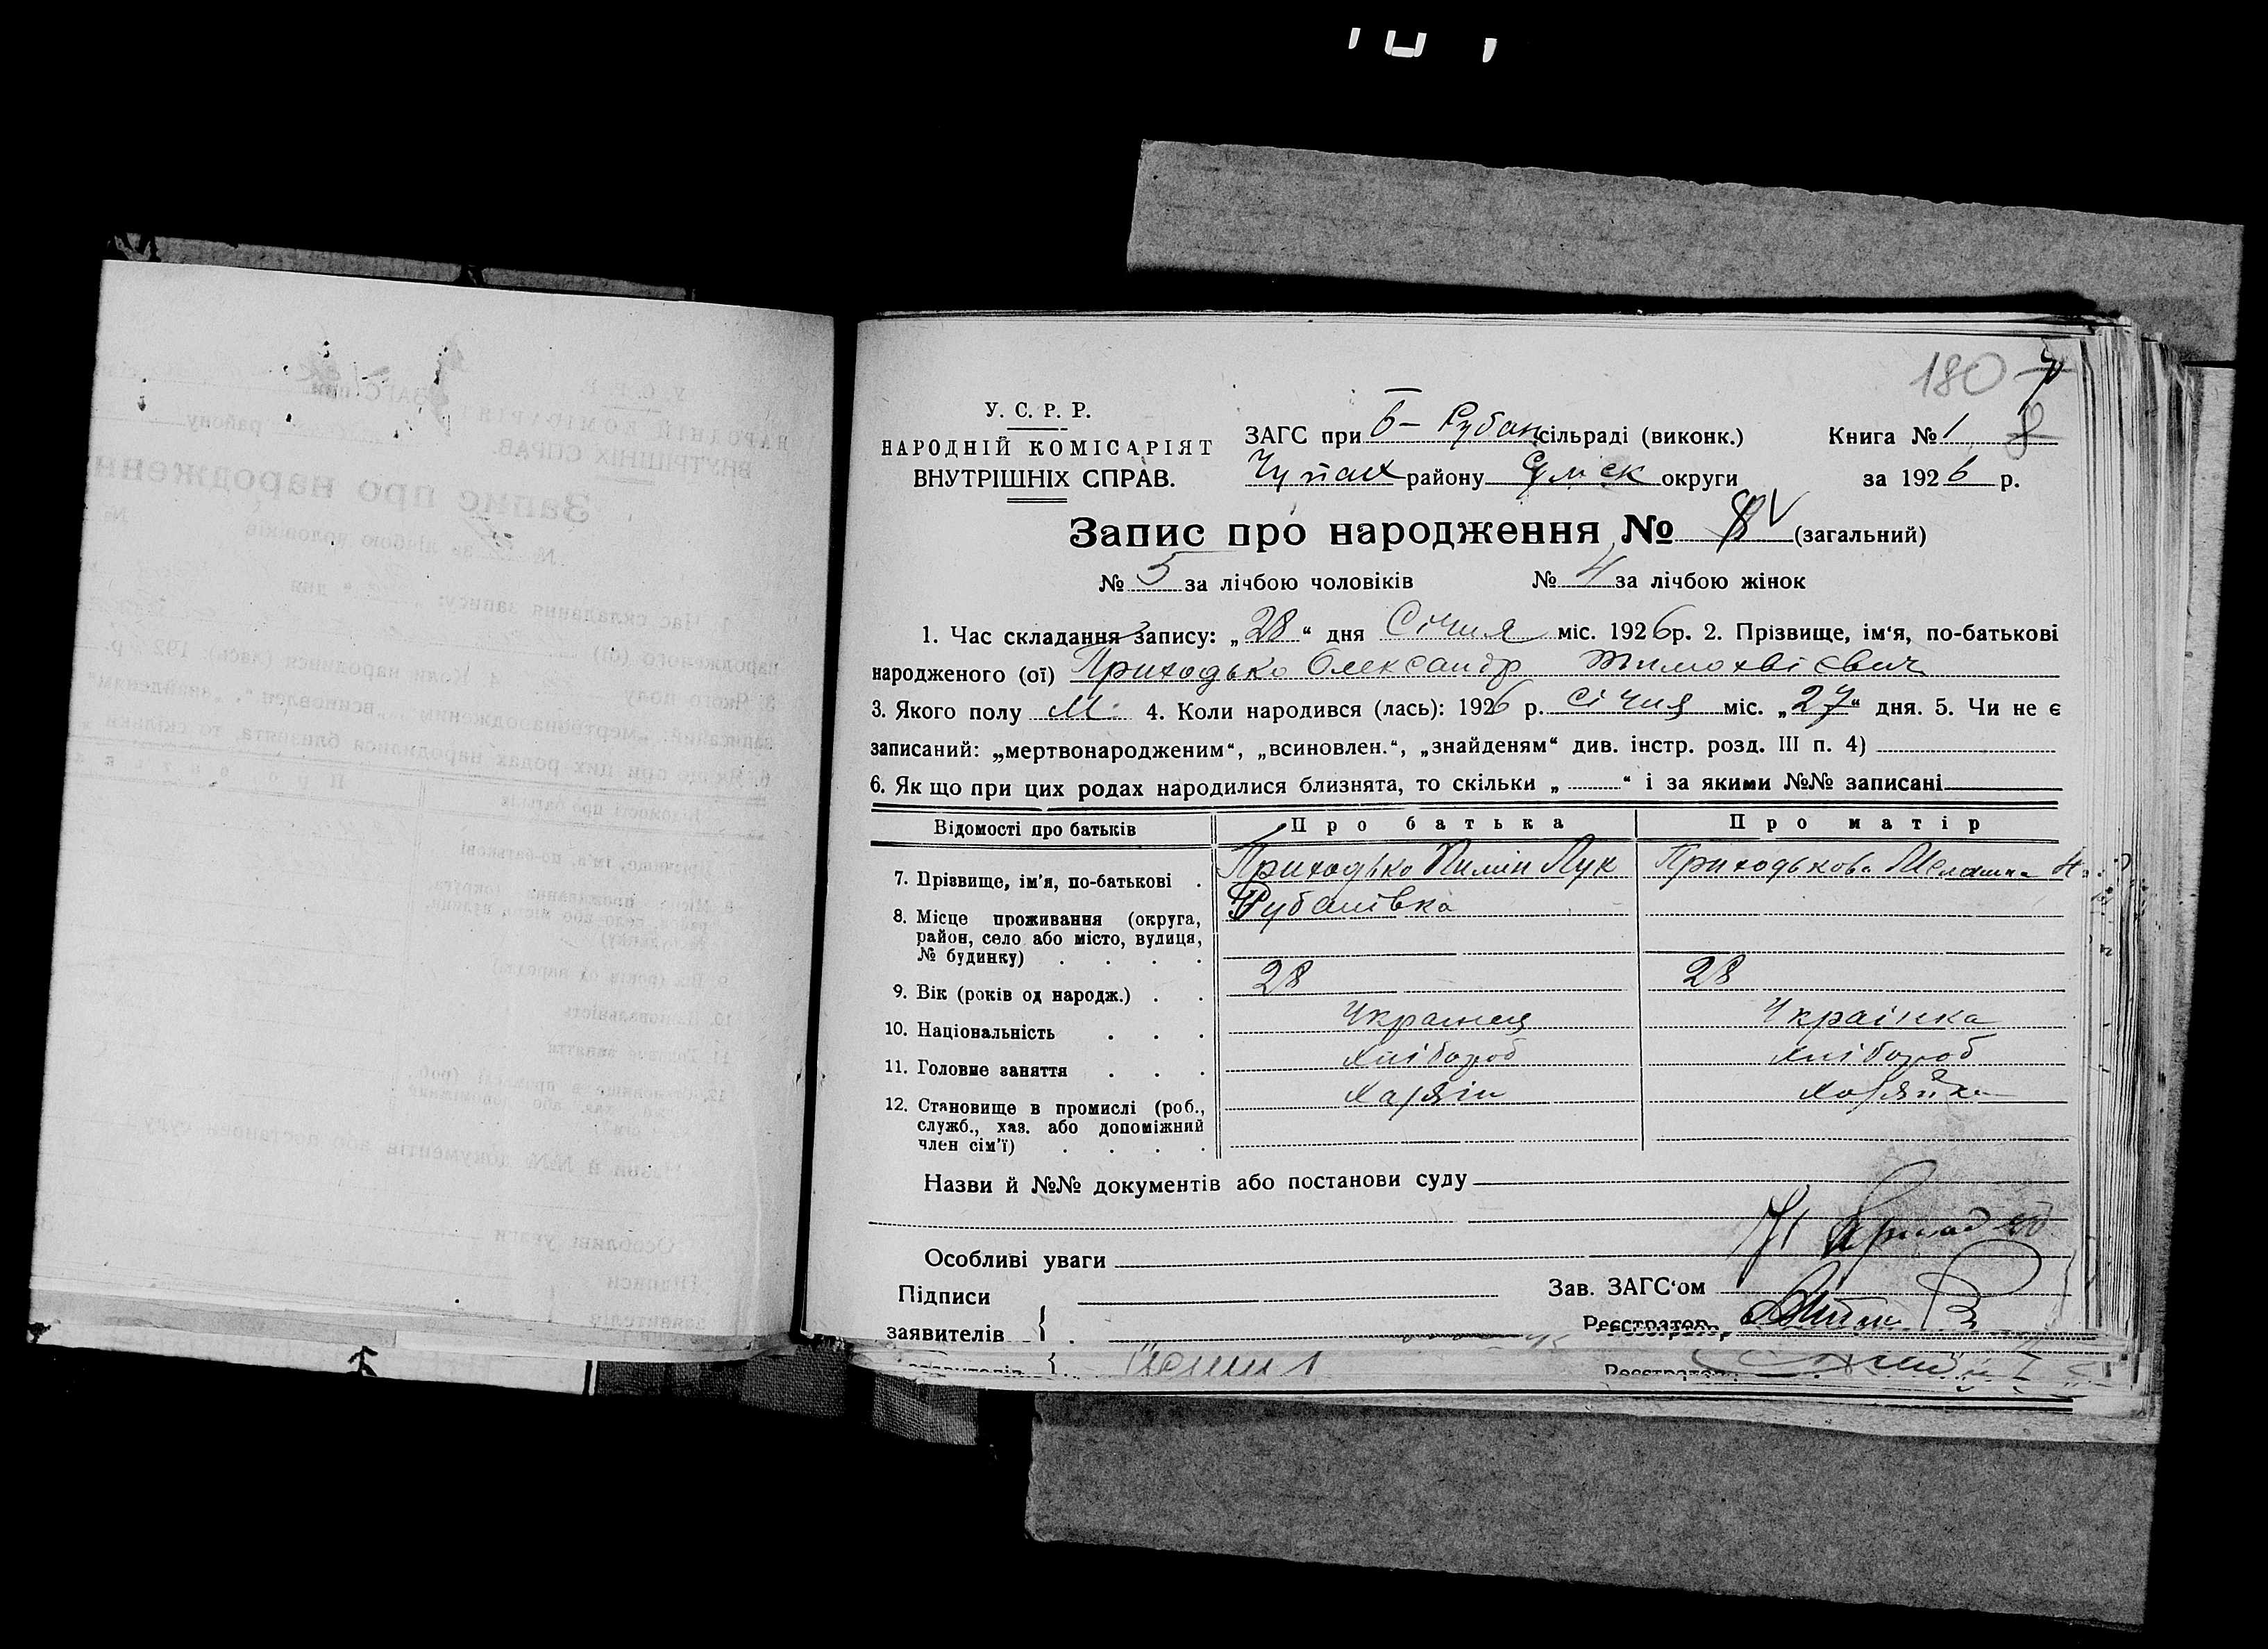 180
У. С. Р. Р.
НАРОДНІЙ КОМІСАРІЯТ
ВНУТРІШНІХ СПРАВ.
ЗАГС при Б- Рубан сільраді (виконк.) Книга № 1 8
Чупах району Сумск округи за 1926 р.
Запис про народження № 8 (загальний)
№ 5 за лічбою чоловіків № 4 за лічбою жінок
1. Час складання запису: „28“ дня Січня міс. 1926 р. 2. Прізвище, ім‘я, по-батькові
народженого (ої) Приходько Олександр Тимохвієвич
3. Якого полу М. 4. Коли народився (лась): 1926 р. січня міс. „27“ дня. 5. Чи не є
записаний: „мертвонародженим“, „всиновлен.“, „знайденям“ див. інстр. розд. III п. 4)
6. Як що при цих родах народилися близнята, то скільки „ “ і за якими №№ записані
Відомості про батьків Про батька Про матір
7. Прізвище, ім'я, по-батькові . Приходько Пилип Лук Приходькова Мелашка
8. Місце проживання (округа, Рубанівка
район, село або місто, вулиця,
№ будинку) . . . .
9. Вік (років од народж.) . . 28 28
10. Національність . . . Украінец Украінка
11. Головне заняття . . . Хлібороб Хлібороб
12. Становище в промислі (роб., Хазяін Хазяйка
служб., хаз. або допоміжний
член сім'ї) . . . .
Назви й №№ документів або постанови суду
Особливі уваги
Підписи Зав. ЗАГС‘ом
заявителів { Реєстратор
Реєстратор